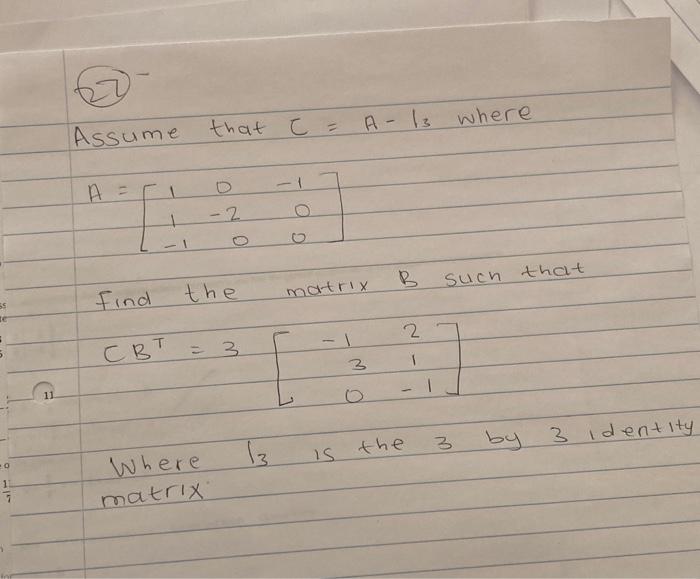 27
Assume that C = A - I3 where
A = [ 1 0 -1
1 -2 0
-1 0 0 ]
Find the matrix B such that
CB^T = 3 [ -1 2
3 1
0 -1 ]
11
Where I3 is the 3 by 3 identity
matrix